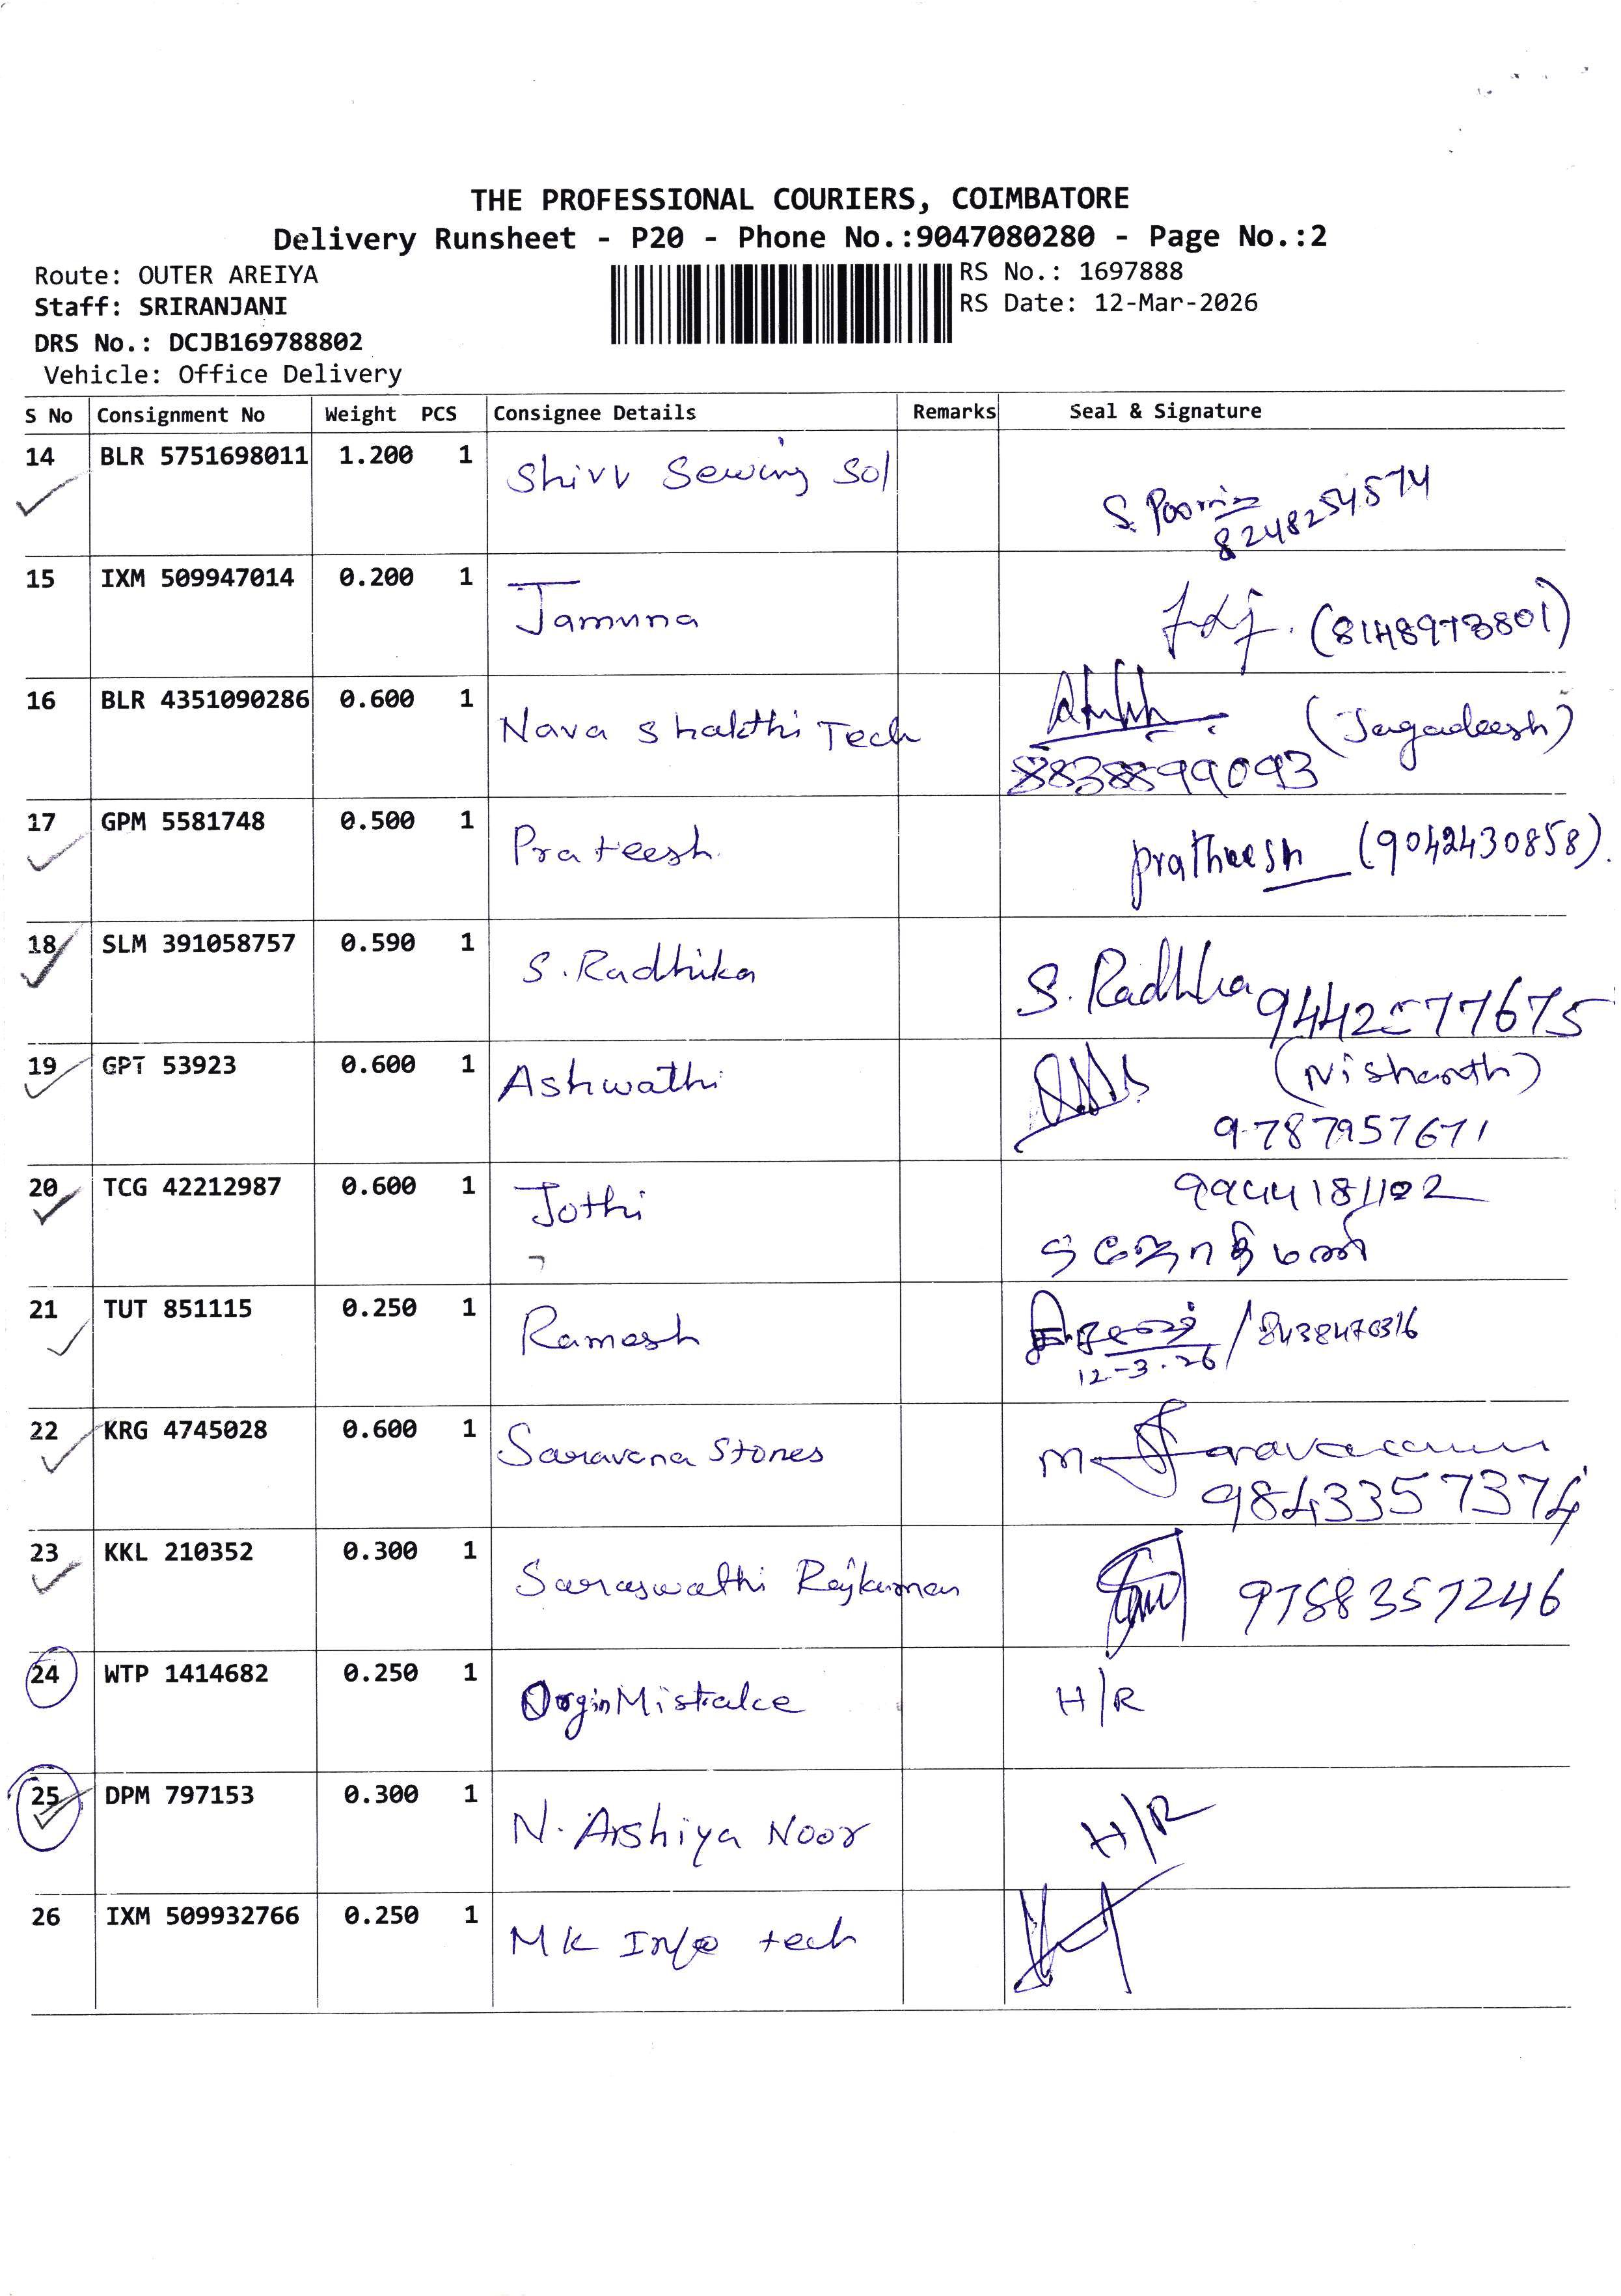 THE PROFESSIONAL COURIERS, COIMBATORE
Delivery Runsheet - P20 - Phone No.:9047080280 - Page No.:2
Route: OUTER AREIYA
RS No.: 1697888
Staff: SRIRANJANI
RS Date: 12-Mar-2026
DRS No.: DCJB169788802
Vehicle: Office Delivery
S No Consignment No Weight PCS Consignee Details Remarks Seal & Signature
14 BLR 5751698011 1.200 1 Shivv Sewing Sol
8248254574
15 IXM 509947014 0.200 1 Jamuna
(8148973801)
16 BLR 4351090286 0.600 1 Nava Shakthi Tech
(Jagadeesh)
8838899093
17 GPM 5581748 0.500 1 Prateesh
pratheesh (9042430858).
18 SLM 391058757 0.590 1 S. Radhika
S. Radhika 9442577675
19 GPT 53923 0.600 1 Ashwathi
(Nishanth)
9787957671
20 TCG 42212987 0.600 1 Jothi
9944181102
S ஜோதிமணி
21 TUT 851115 0.250 1 Ramesh
/ 8438470316
12-3-26
22 KRG 4745028 0.600 1 Saravana Stones
9843357374
23 KKL 210352 0.300 1 Saraswathi Rajkumar
9788357246
24 WTP 1414682 0.250 1 Orgin Mistake H/R
25 DPM 797153 0.300 1 N. Arshiya Noor H/R
26 IXM 509932766 0.250 1 MK Info tech